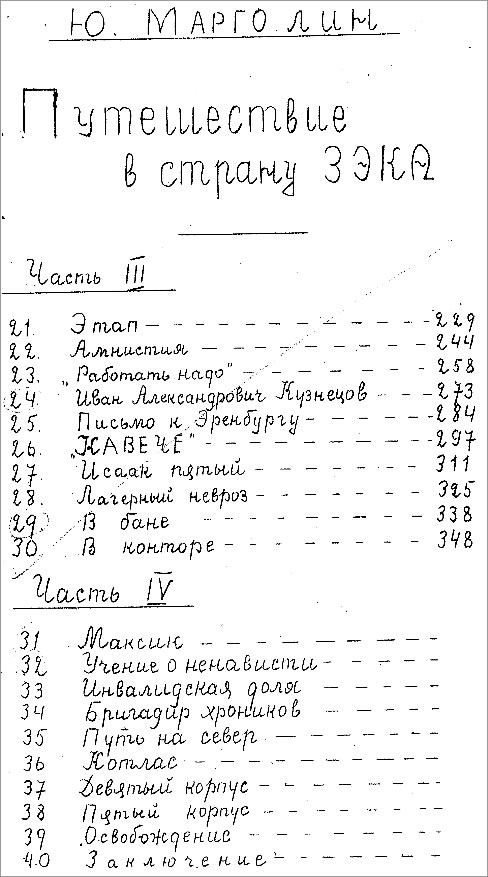 Ю. МАРГОЛИН
Путешествие
в страну ЗЭКА
Часть III
21. Этап — 229
22. Амнистия — 244
23. „Работать надо" — 258
24. Иван Александрович Кузнецов — 273
25. Письмо к Эренбургу — 284
26. „КАВЕЧЕ" — 297
27. Исаак пятый — 311
28. Лагерный невроз — 325
29. В бане — 338
30. В конторе — 348
Часть IV
31 Максик
32 Учение о ненависти
33 Инвалидская доля
34 Бригадир хроников
35 Путь на север
36 Котлас
37 Девятый корпус
38 Пятый корпус
39 Освобождение
40 Заключение